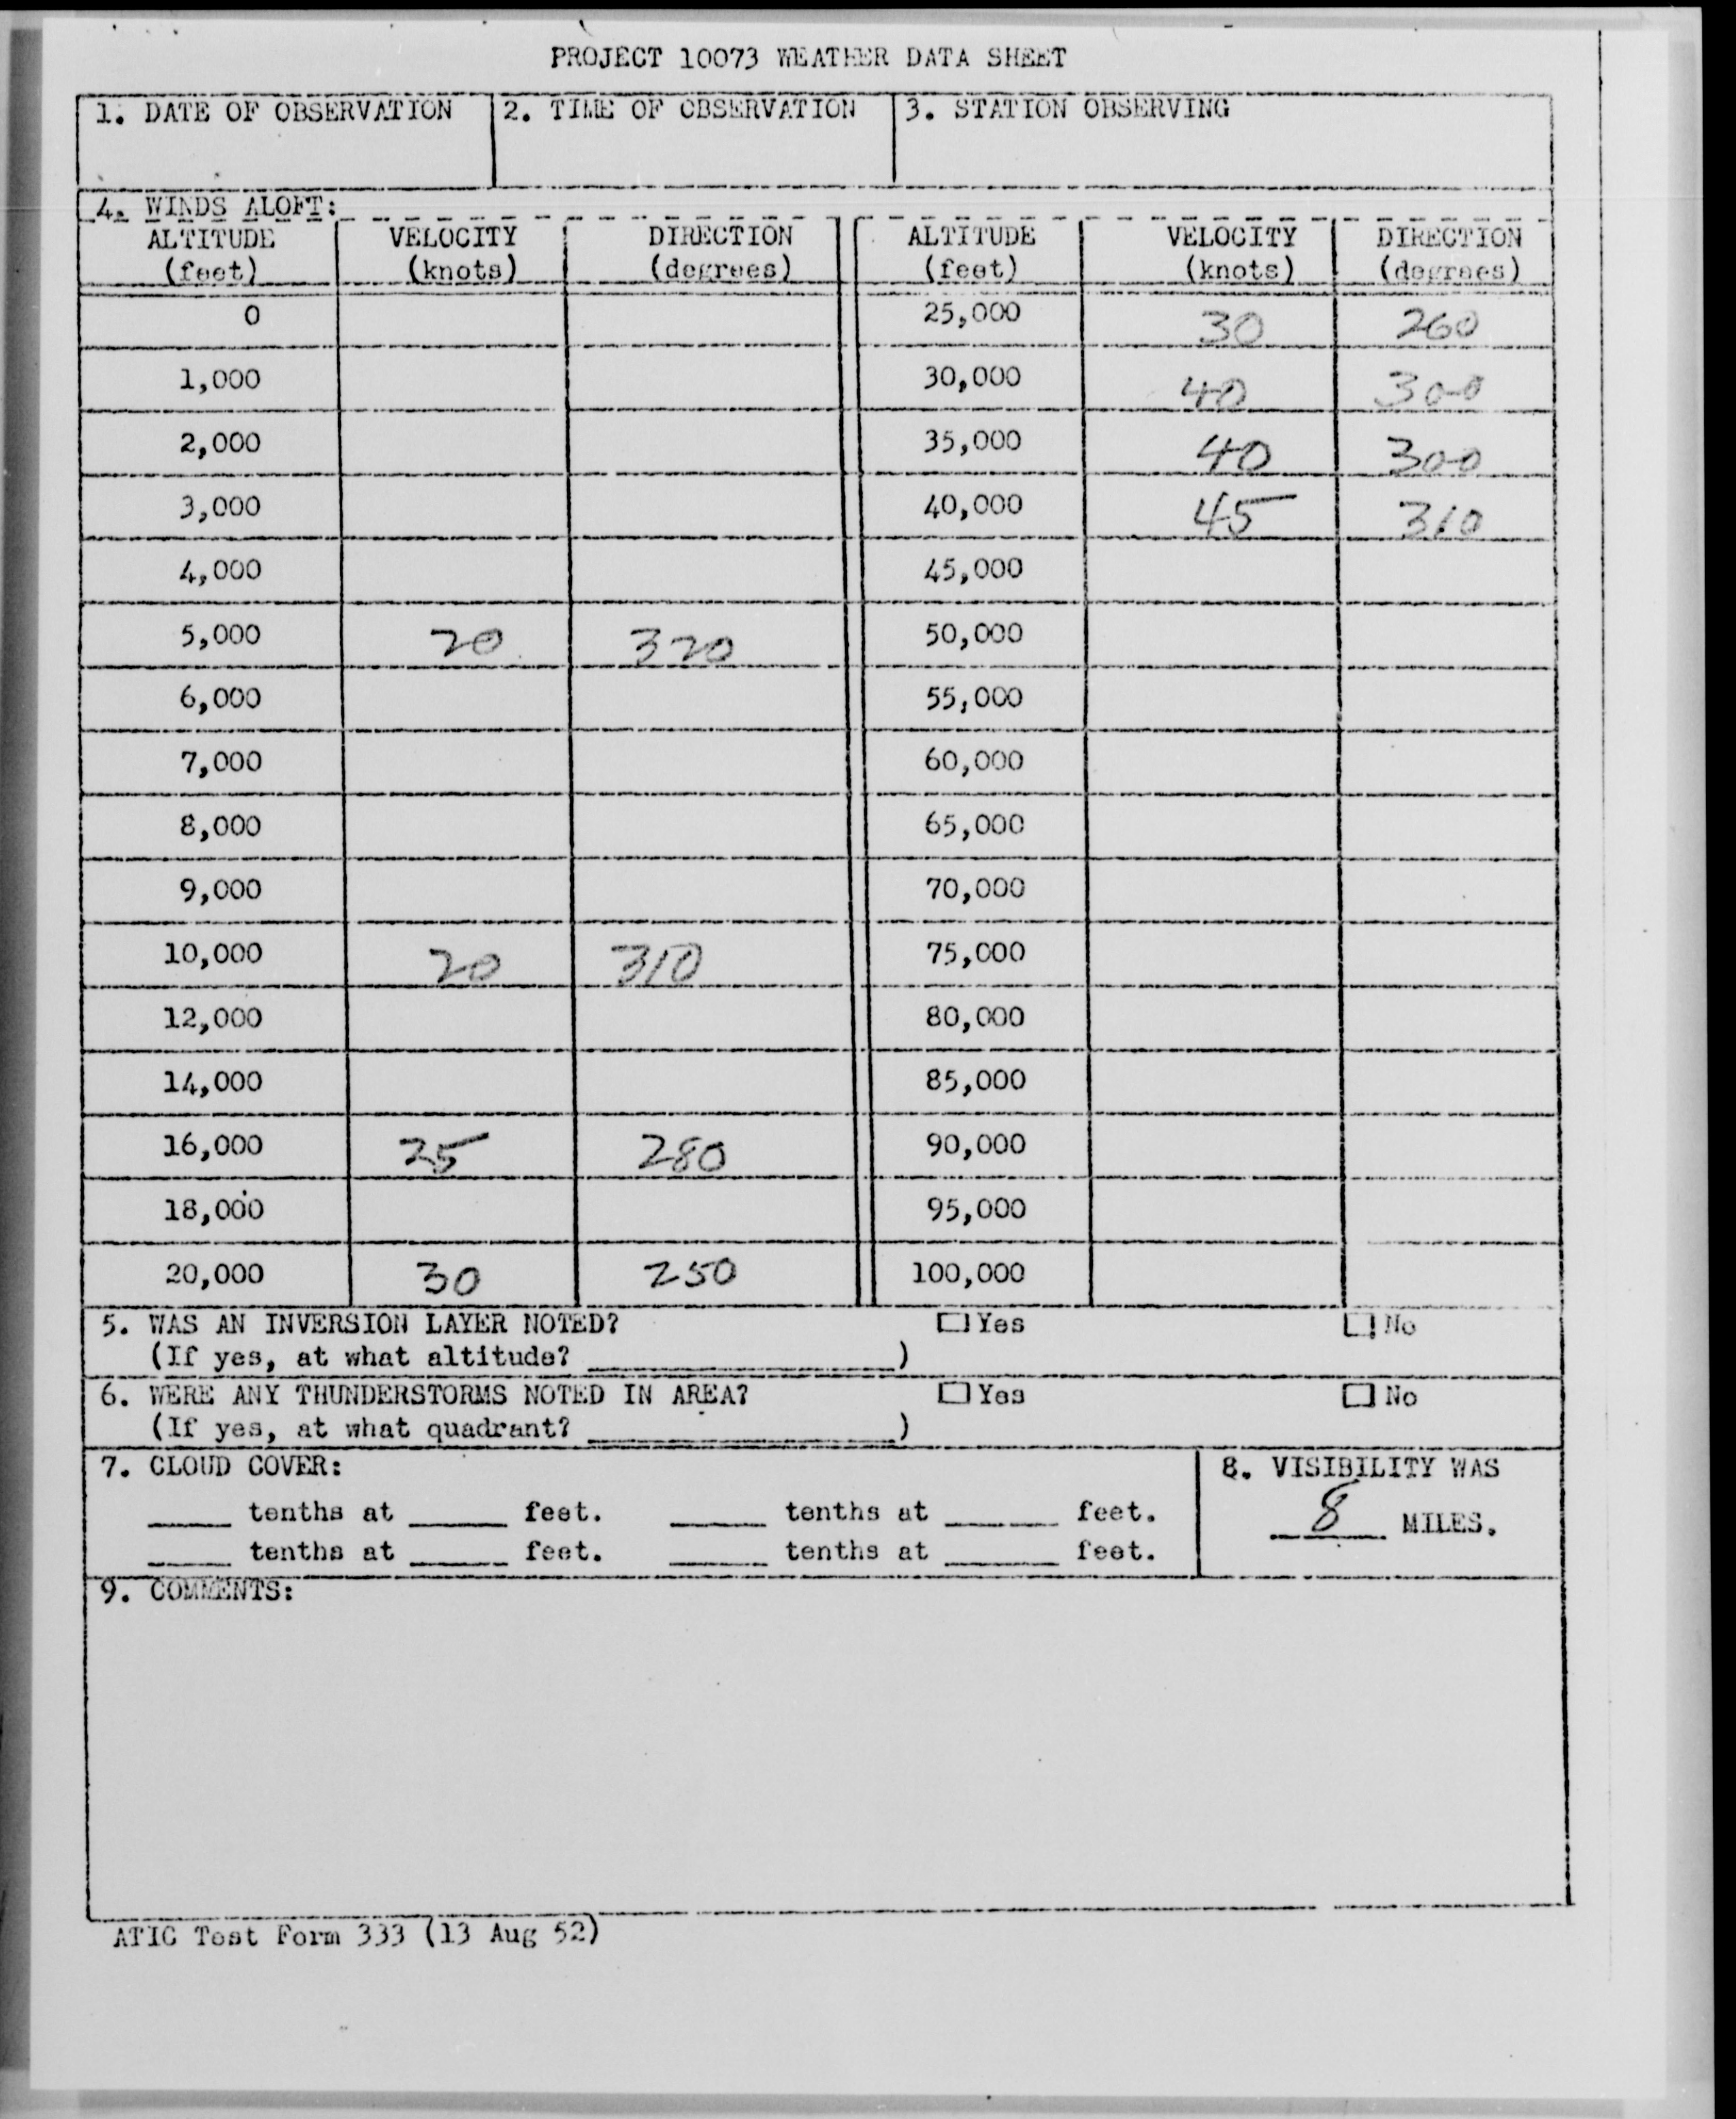 PROJECT 10073 WEATHER DATA SHEET
1. DATE OF OBSERVATION 2. TIME OF OBSERVATION 3. STATION OBSERVING
4. WINDS ALOFT:
ALTITUDE VELOCITY DIRECTION ALTITUDE VELOCITY DIRECTION
(feet) (knots) (degrees) (feet) (knots) (degrees)
0 25,000 30 260
1,000 30,000 40 300
2,000 35,000 40 300
3,000 40,000 45 310
4,000 45,000
5,000 20 320 50,000
6,000 55,000
7,000 60,000
8,000 65,000
9,000 70,000
10,000 20 310 75,000
12,000 80,000
14,000 85,000
16,000 25 280 90,000
18,000 95,000
20,000 30 250 100,000
5. WAS AN INVERSION LAYER NOTED? Yes No
(If yes, at what altitude? ____________)
6. WERE ANY THUNDERSTORMS NOTED IN AREA? Yes No
(If yes, at what quadrant? ____________)
7. CLOUD COVER: 8. VISIBILITY WAS
____ tenths at ____ feet. ____ tenths at ____ feet. 8 MILES.
____ tenths at ____ feet. ____ tenths at ____ feet.
9. COMMENTS:
ATIC Test Form 333 (13 Aug 52)